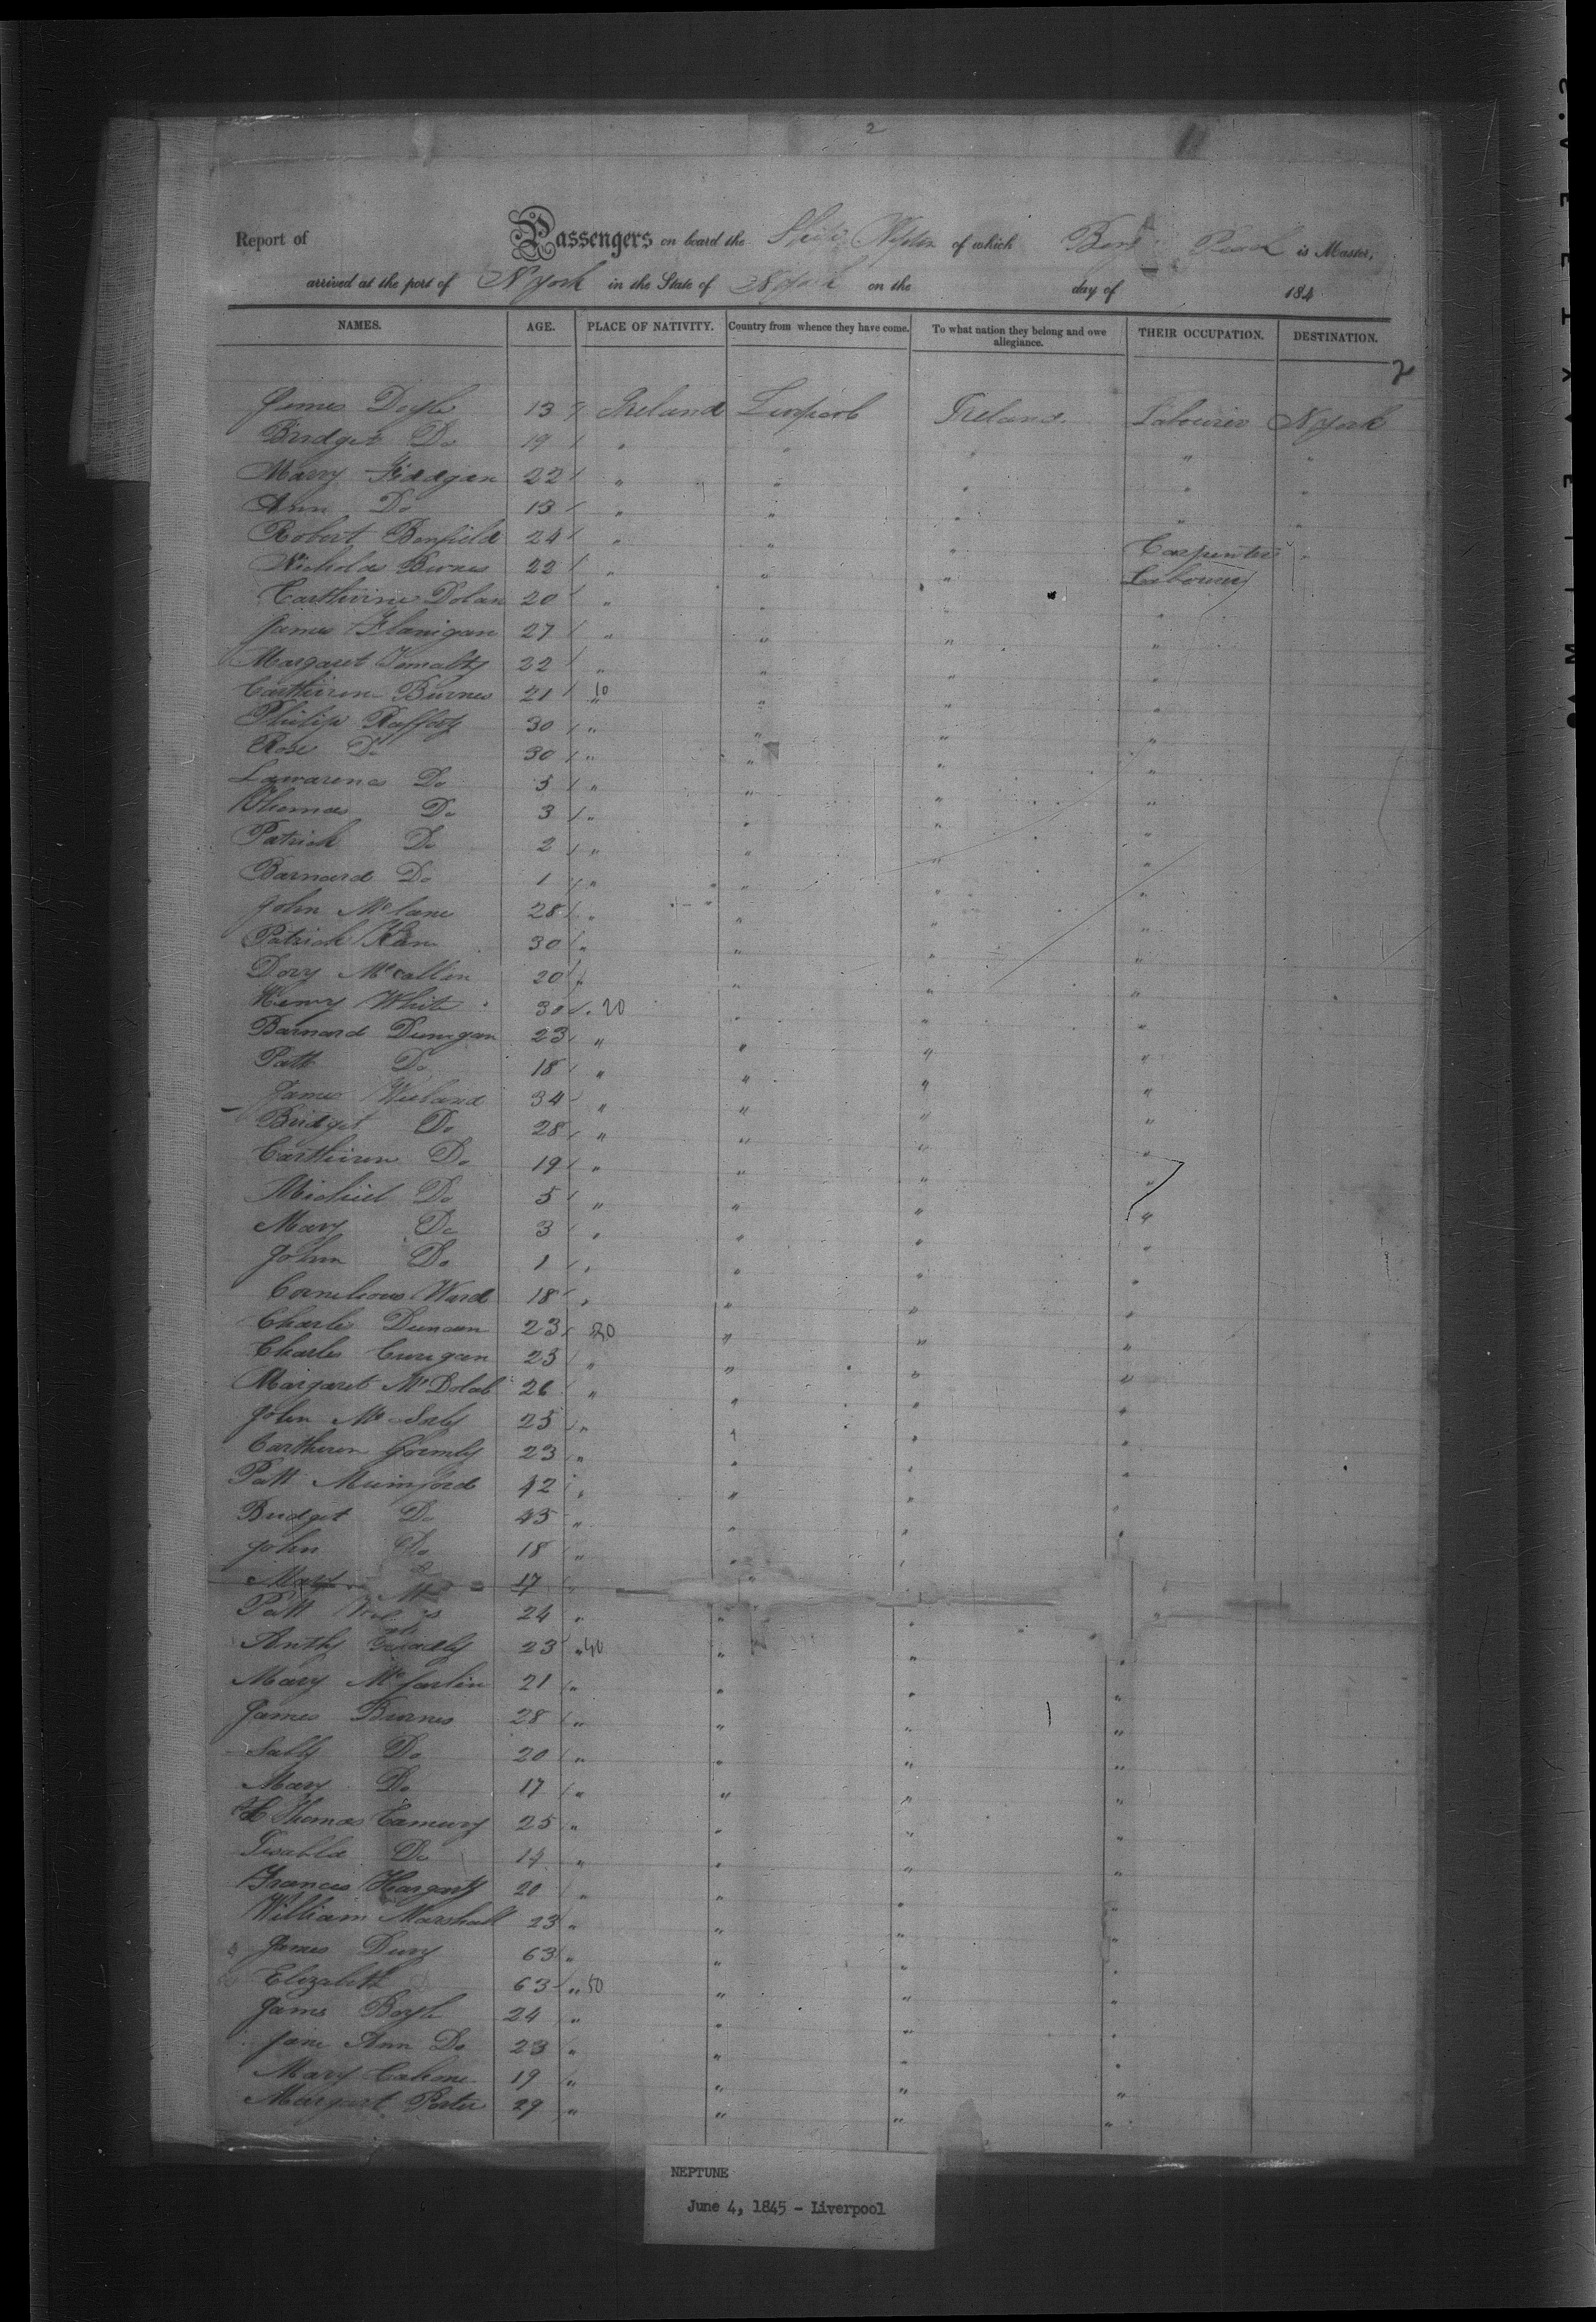 2
Report of Passengers on board the Ship Neptn of which Benj Peak is Master,
arrived at the port of N York in the State of N York on the day of 184
NAMES. AGE. PLACE OF NATIVITY. Country from whence they have come. To what nation they belong and owe allegiance. THEIR OCCUPATION. DESTINATION.
2
James Doyle 13 Ireland Liverpool Ireland Labourer N York
Bridget Do 19 " " " " "
Mary 22 " " " " "
Ann Do 13 " " " " "
Robert Benfield 24 " " " Carpenter "
Nicholas Burnes 22 " " " Labourer
Cartherine Dolan 20 " " " "
James Flanigan 27 " " " "
Margaret 22 " " " "
Cartheren Burnes 21 10 " " " "
Philip Rafforty 30 " " " "
Rose Do 30 " " " "
Lawarence Do 5 " " " "
Thomas Do 3 " " " "
Patrick Do 2 " " " "
Barnard Do 1 " " " "
John Mclane 28 " " " "
Patrick 30 " " " "
Dory McCallin 20 " " " "
Henry White 30 " 20 " " "
Barnard Dunigan 23 " " " "
Patt Do 18 " " " "
James 34 " " " "
Bridget Do 28 " " " "
Cartheren Do 19 " " " "
Michiel Do 5 " " " "
Mary Do 3 " " " "
John Do 1 " " " "
Cornelious Ward 18 " " " "
Charles Duncan 23 30 " " "
Charles Curigan 23 " " " "
Margaret 26 " " " "
John 25 " " " "
Cartheren Gormly 23 " " " "
Patt Mumford 42 " " " "
Bridget Do 45 " " " "
John Do 18 " " " "
Mary 17 " "
Patt 24 " " " "
Anthy 23 " 40 " " "
Mary McFarlin 21 " " " "
James Burnes 28 " " " "
Sally Do 20 " " " "
Mary Do 17 " " " "
Thomas 25 " " " "
Do 14 " " " "
Frances 20 " " " "
William Marshall 23 " " " "
James Dury 63 " " " "
Elizabeth 63 " 50 " " "
James Boyle 24 " " " "
Jane Ann Do 23 " " " "
Mary Cahone 19 " " " "
Margart Porter 29 " " " "
NEPTUNE
June 4, 1845 - Liverpool